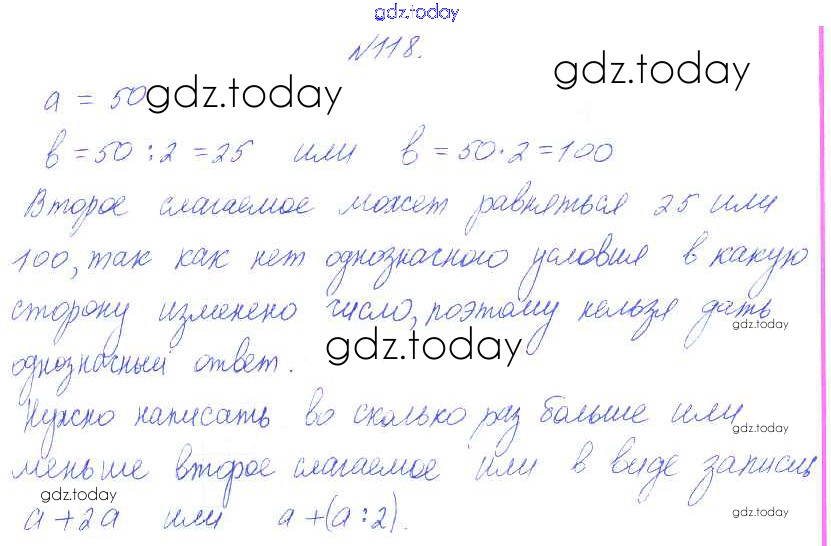 gdz.today
№118.
gdz.today
a = 50 gdz.today
в = 50 : 2 = 25 или в = 50·2 = 100
Второе слагаемое может равняться 25 или
100, так как нет однозначного условия в какую
сторону изменено число, поэтому нельзя дать
gdz.today
однозначный ответ.
gdz.today
Нужно написать во сколько раз больше или
gdz.today
меньше второе слагаемое или в виде записи
gdz.today
a + 2a или a + (a : 2).
gdz.today